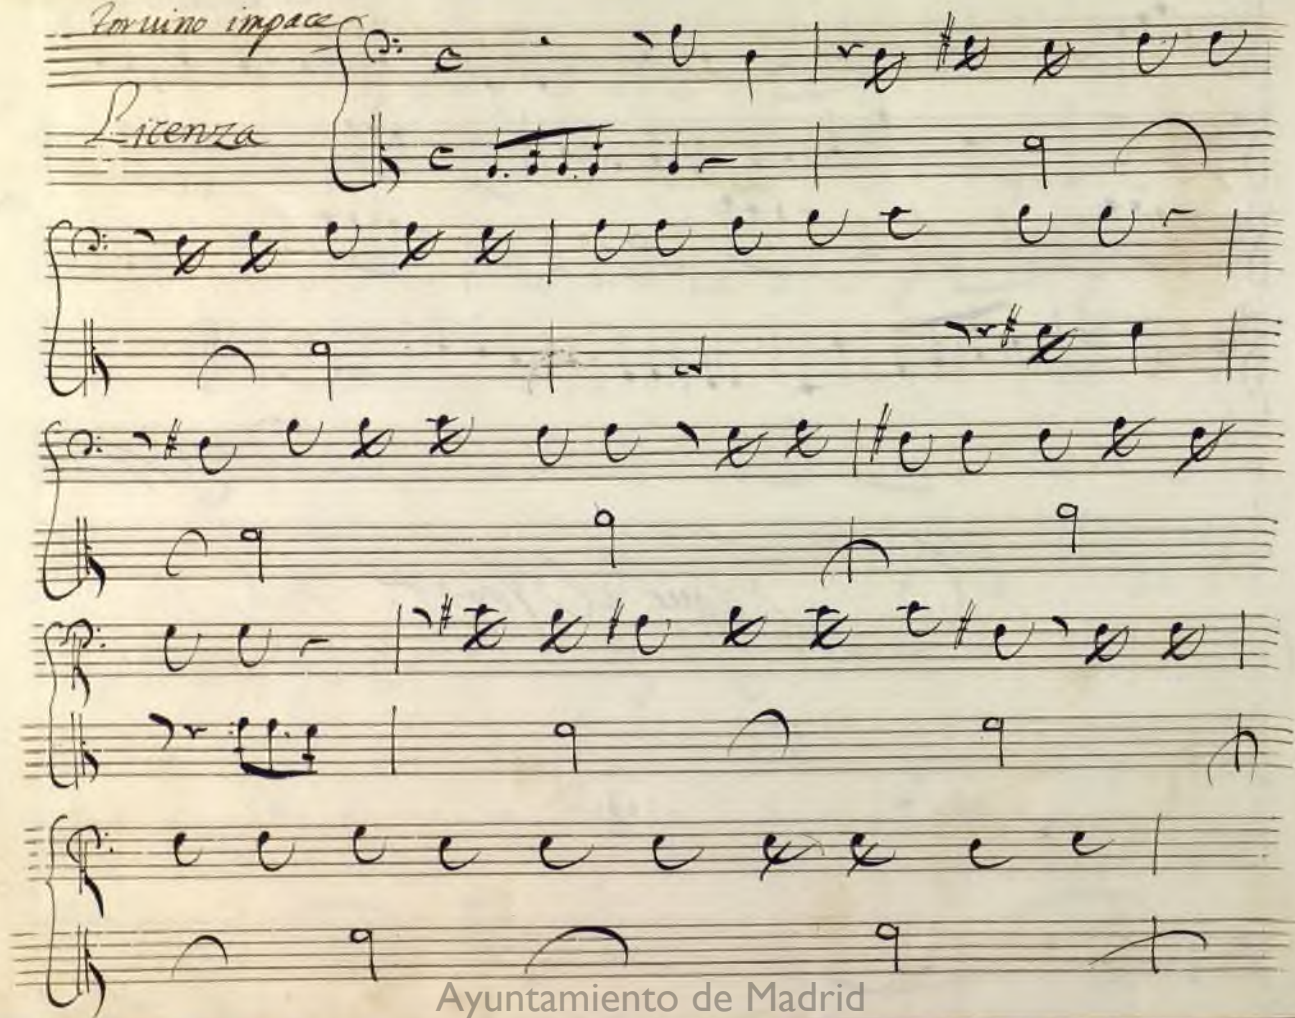 Toruino impace
Licenza
Ayuntamiento de Madrid